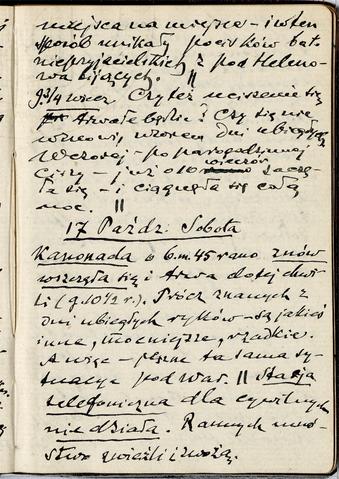 miejsca na miejsce – i w ten
sposób unikały pocisków bat.
nieprzyjacielskich z pod Heleno-
wa bijących. ||
g. 9 3/4 wiecz. Czy też uciszenie się
trwałe będzie? Czy się nie
wznowi, wzorem dni ubiegłych
Wczoraj – po parogodzinnej
ciszy – już o 10 wieczór zaczę-
ła się – i ciągnęła się całą
noc. ||
17 Paźdz. Sobota
Kanonada o 6.m.45 rano znów
wszczęła się i trwa dotej chwi-
li (g. 10 1/2 r.). Prócz znanych z
dni ubiegłych ryków – są jakieś
inne, mocniejsze, rzadkie.
A więc – pewne ta sama sy-
tuacja pod War. || Stacja
telefoniczna dla cywilnych
nie działa. Rannych mnó-
stwo zwieźli i zwożą.